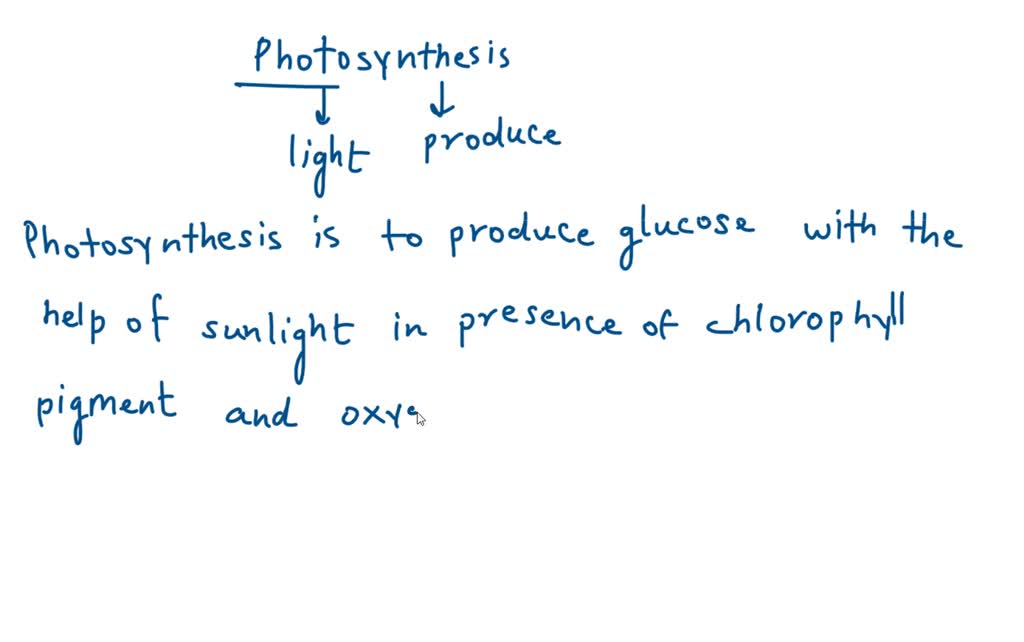 Photosynthesis
light produce
Photosynthesis is to produce glucose with the
help of sunlight in presence of chlorophyll
pigment and oxye